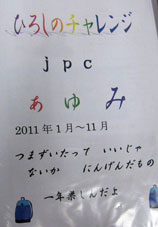 ひろしのチャレンジ
jpc
あゆみ
2011年1月～11月
つまずいたって いいじゃ
ないか にんげんだもの
一年楽しんだよ